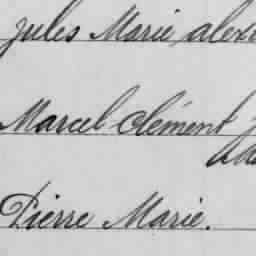 Jules Marie
Marcel-Clément
Pierre Marie.